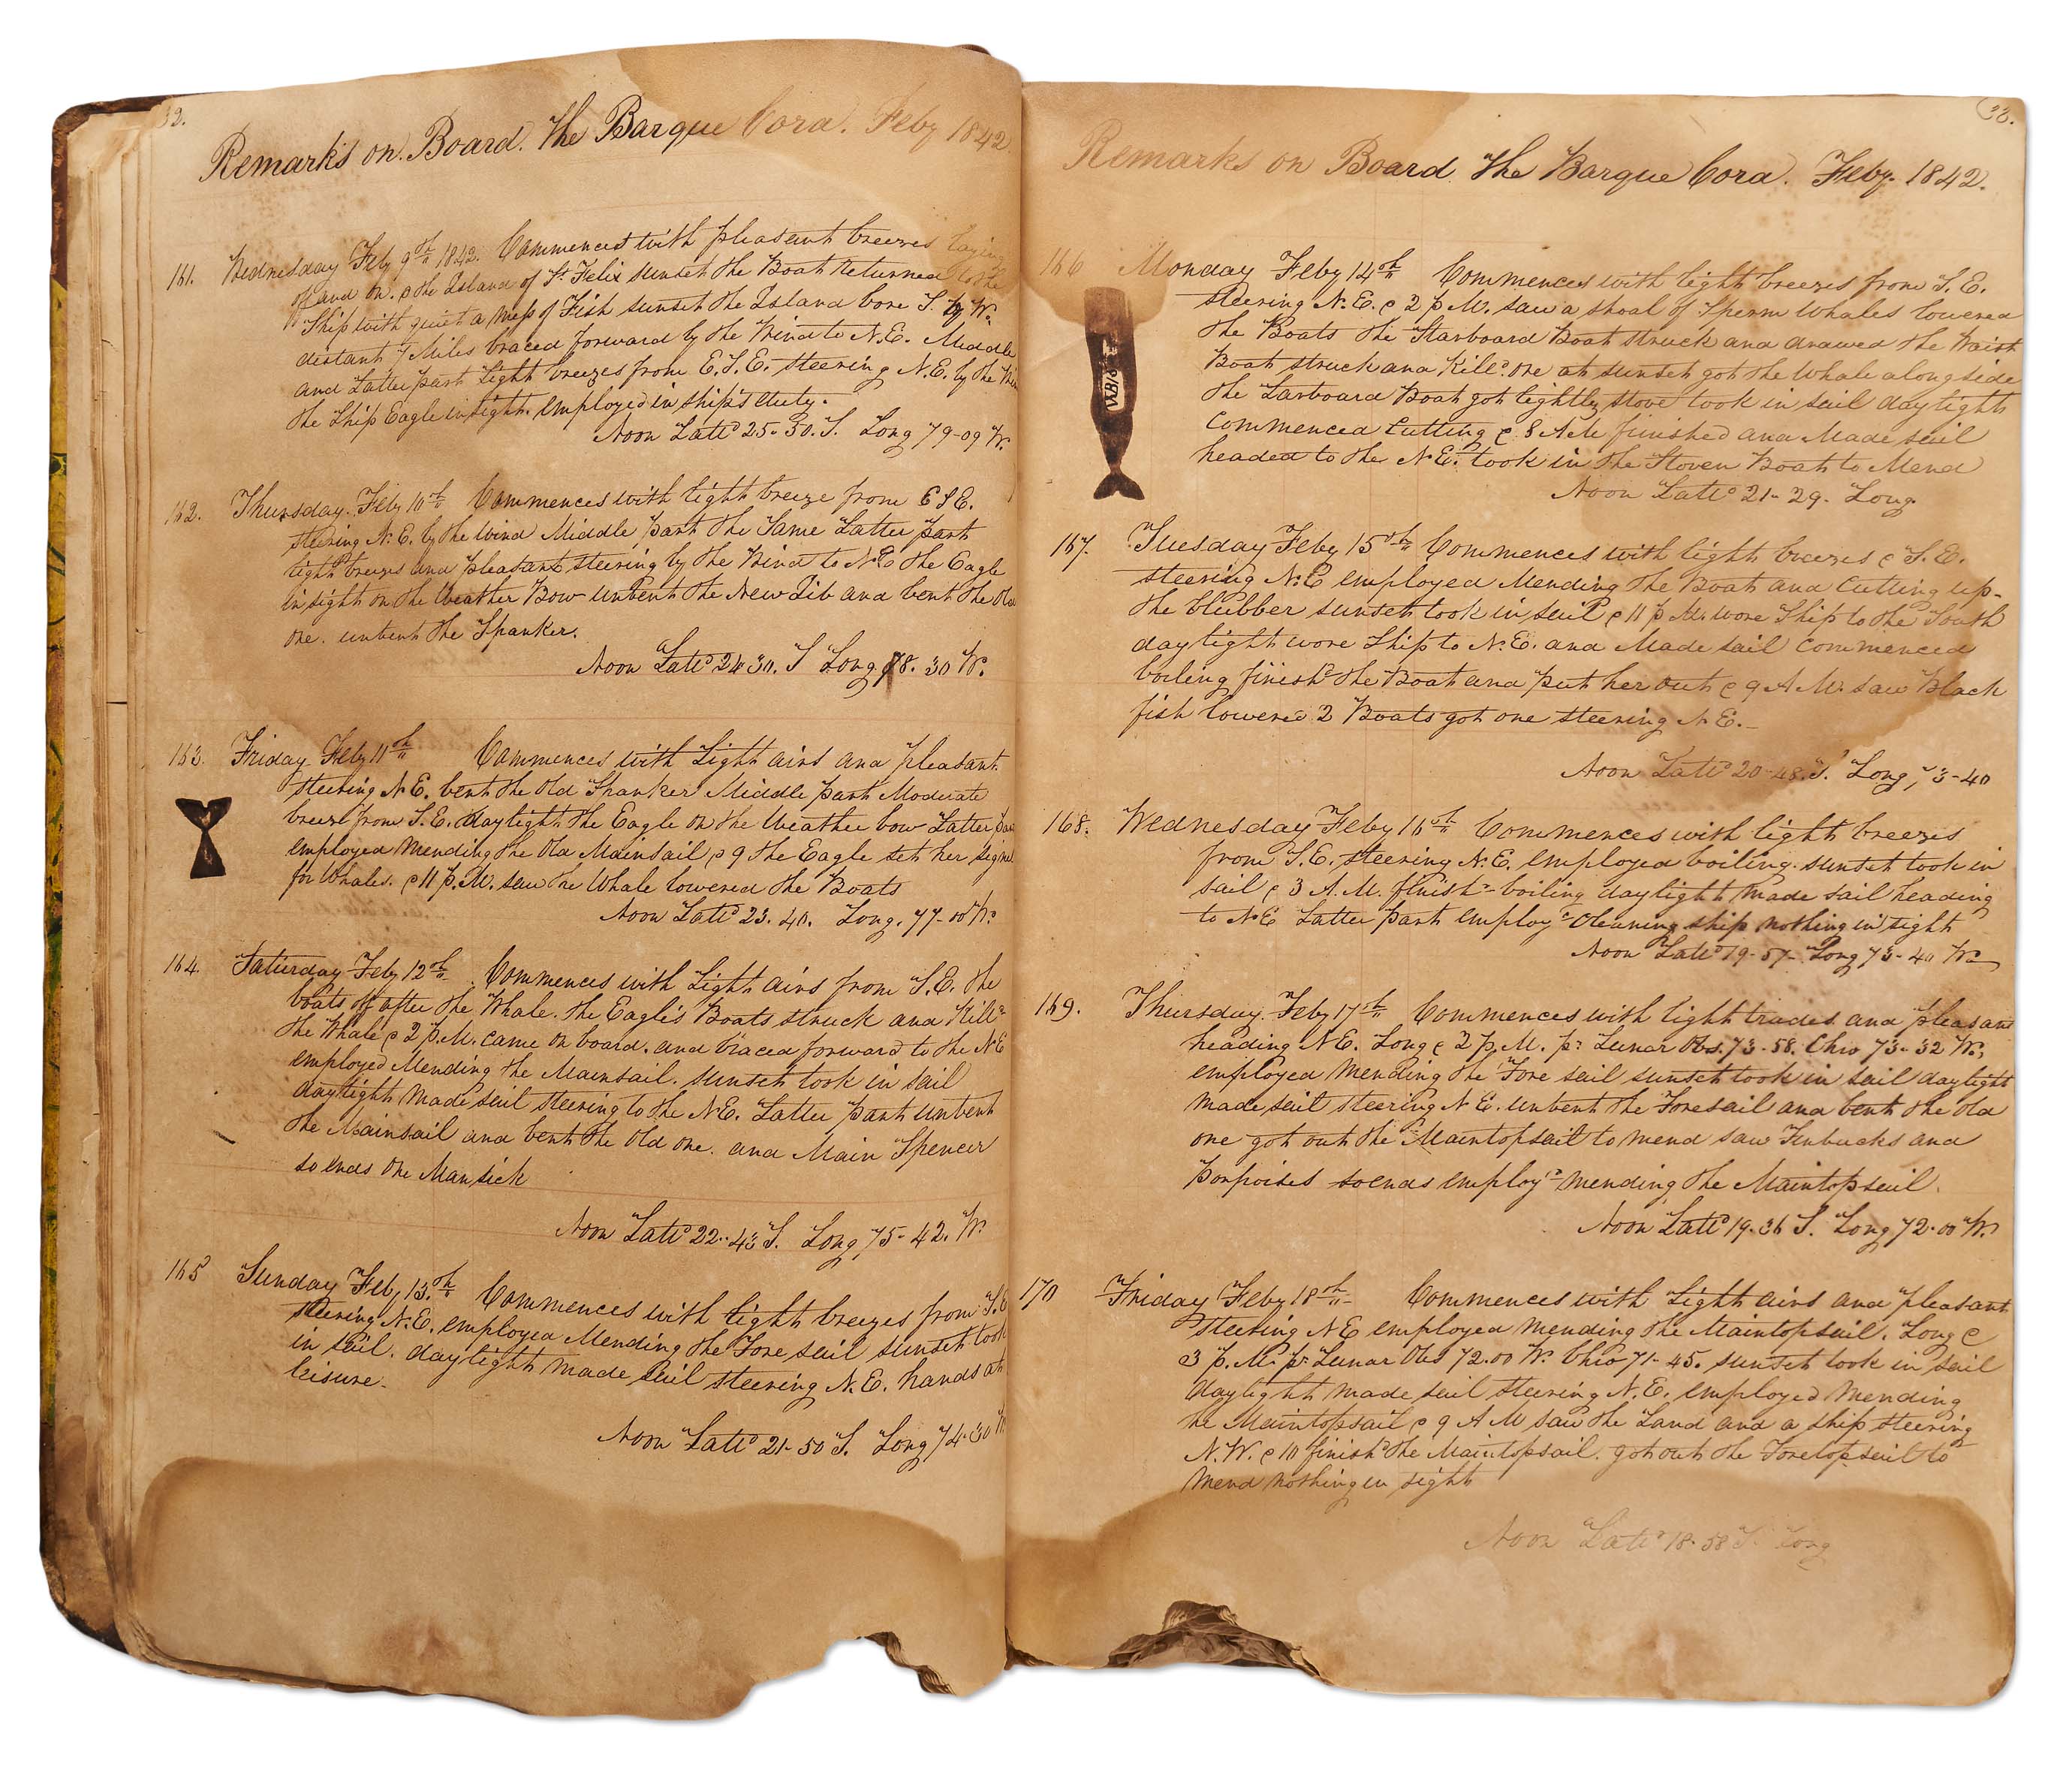 32.
Remarks on Board. the Barque Cora. Feby 1842
161. Wednesday Feby 9th 1842. Commences with pleasant breezes laying
off and on. @ the Island of St Felix sunset the Boat Returned to the
Ship with quiet a mess of Fish sunset the Island bore S. by W.
distant 7 Miles braced forward by the Wind to N.E. Middle
and Latter part Light breezes from E.S.E. steering N.E. by the Win
the Ship Eagle in sight. employed in ship's duty.
Noon Latd 25-30. S. Long 79-09 W.
162. Thursday. Feby 10th Commences with light breeze from ESE.
steering N.E. by the wind Middle part the Same Latter part
light breezes and pleasant steering by the Wind to NE the Eagle
in sight on the Weather Bow unbent the New Jib and bent the Old
one. unbent the Spanker.
Noon Latd 24 30. S Long 78. 30 W.
163. Friday Feby 11th Commences with Light airs and pleasant
steering N.E. bent the Old Spanker Middle part Moderate
breeze from S.E. daylight the Eagle on the Weather bow Latter part
employed Mending the Old Mainsail @ 9 the Eagle set her Signal
for Whales. @ 11 P.M. saw the Whale lowered the Boats
Noon Latd 23. 40. Long. 77-00 W.
164. Saturday Feby 12th Commences with Light airs from S.E. the
boats off after the Whale. the Eagle's Boats struck and Killd
the Whale @ 2 P.M. came on board. and braced forward to the NE
employed Mending the Mainsail. sunset took in sail
daylight Made sail steering to the NE. Latter part unbent
the Mainsail and bent the Old one. and Main Spencer
so ends One Man sick
Noon Latd 22-43 S. Long 75-42. W.
165 Sunday Feby 13th Commences with light breezes from S.E
steering N.E. employed Mending the Fore sail sunset took
in sail. daylight made sail steering N.E. hands at
leisure.
Noon Latd 21-50 S. Long 74-30 W.
33.
Remarks on Board the Barque Cora. Feby. 1842.
166 Monday Feby 14th Commences with light breezes from S.E.
steering N.E. @ 2 P.M. saw a shoal of Sperm Whales lowered
the Boats the Starboard Boat struck and drawed the Waist
Boat struck and Killd one at sunset got the Whale alongside
the Larboard Boat got lightly stove took in sail daylight
Commenced Cutting @ 8 AM finished and Made sail
headed to the NE. took in the Stoven Boat to Mend
Noon Latd 21-29. Long.
167. Tuesday Feby 15th Commences with light breezes @ S.E.
steering N.E employed Mending the Boat and Cutting up
the blubber sunset took in sail @ 11 P.M. wore Ship to the South
daylight wore Ship to N.E. and Made sail Commenced
boiling finishd the Boat and put her out @ 9 A.M. saw Black
fish lowered 2 Boats got one steering N.E.
Noon Latd 20-48. S. Long 73-40
168. Wednesday Feby 16th Commences with light breezes
from S.E. steering N.E. employed boiling. sunset took in
sail @ 3 A.M. finishd boiling daylight made sail heading
to NE Latter part employd Cleaning ship nothing in sight
Noon Latd 19-57 Long 73-40 W.
169. Thursday. Feby 17th Commences with light trades. and pleasant
heading NE. Long @ 2 P.M. pr Lunar Obs. 73-58. Chro 73-32 W.,
employed Mending the Fore sail sunset took in sail daylight
Made sail steering N E. unbent the Foresail and bent the Old
one got out the Maintopsail to mend saw Finbacks and
Porpoises so ends employd mending the Maintopsail.
Noon Latd 19-36 S. Long 72-00 W.
170 Friday Feby 18th Commences with Light airs and pleasant
steering NE employed Mending the Maintopsail. Long @
3 P.M. pr Lunar Obs 72.00 W. Chro 71-45. sunset took in sail
daylight made sail steering N.E. employed Mending
the Maintopsail @ 9 A M saw the Land and a ship steering
N.W. @ 10 finishd the Maintopsail. got out the Foretopsail to
Mend nothing in sight
Noon Latd 18-58 S. Long